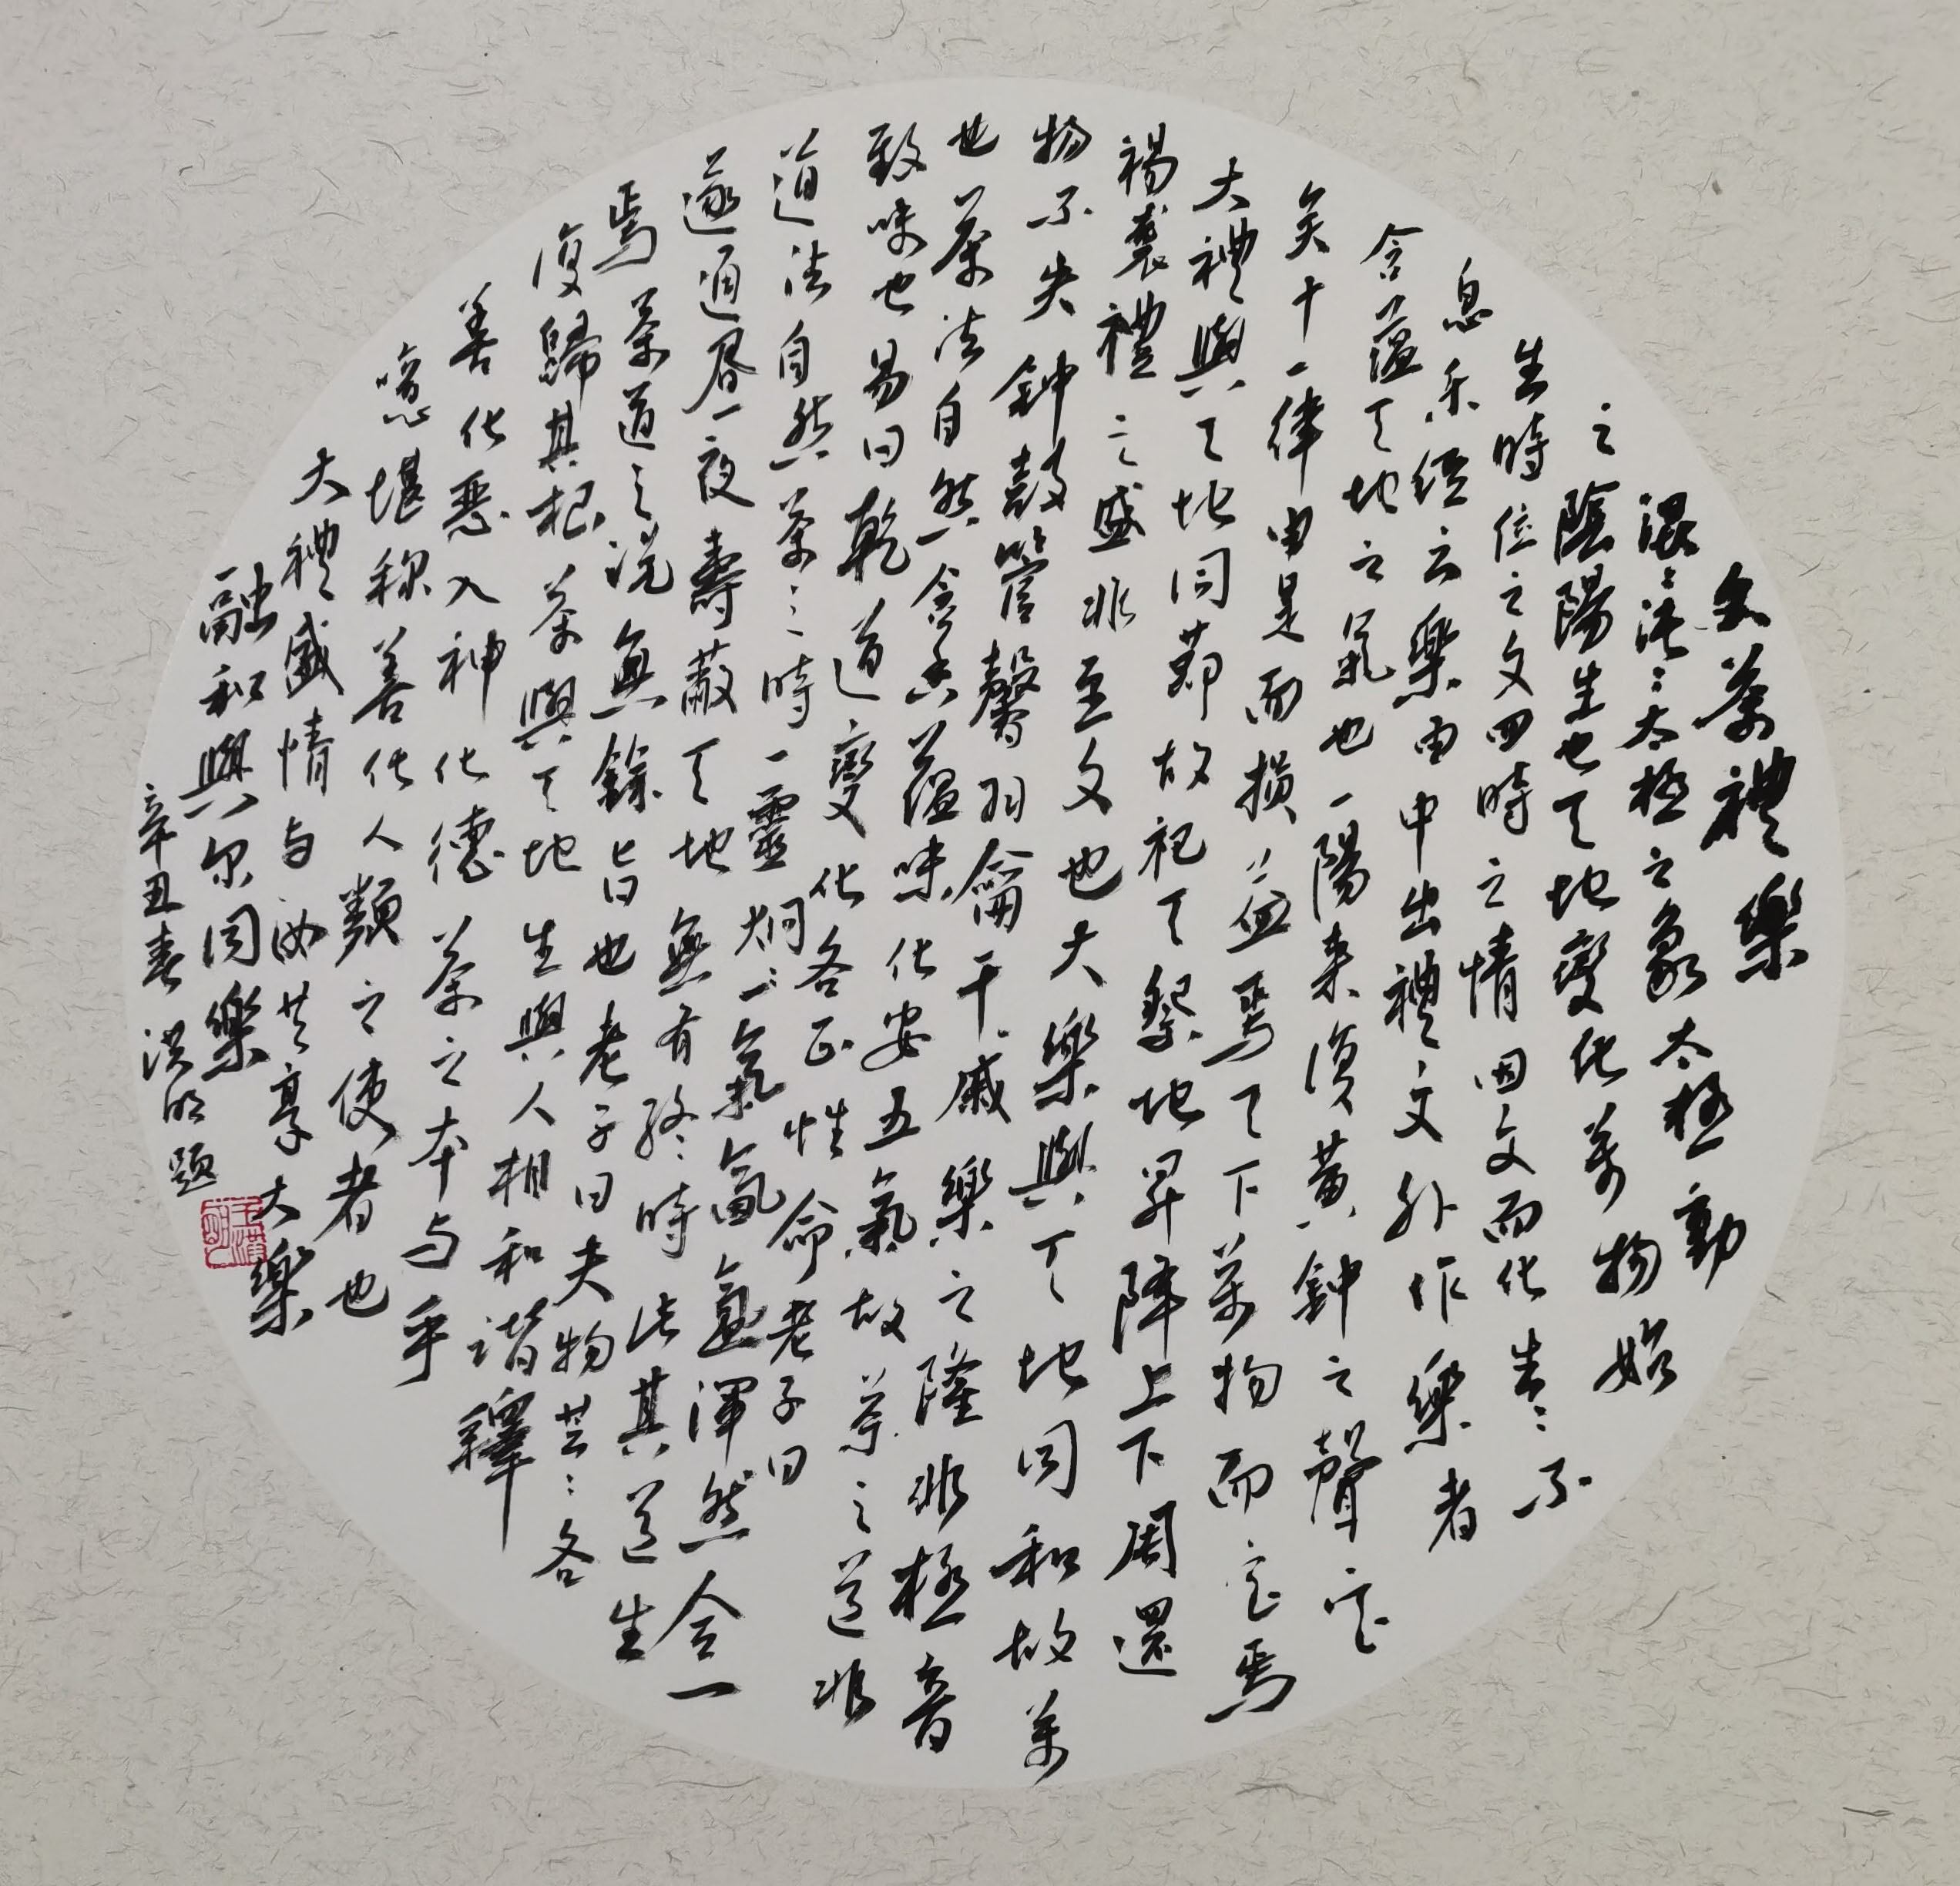 茶禮樂
混混沌沌太極之象太極動
之陰陽生也天地變化萬物始
生時位之文四時之情因文而化生生不
息樂經云樂由中出禮文外作樂者
含蘊天地之氣也一陽來復黃鐘之聲定
矣十一律由是而損益焉天下萬物而定焉
大禮與天地同節故祀天祭地昇降上下周還
裼襲禮之盛非至文也大樂與天地同和故萬
物不失鐘鼓管磬羽籥干戚樂之隆非極音
也茶法自然含香蘊味化安五氣故茶之道非
致味也易曰乾道變化各正性命老子曰
道法自然茶之時一靈炯炯氣氤氳渾然合一
遂通晝夜壽蔽天地無有終時法其道生
焉茶道之說無餘旨也老子曰夫物芸芸各
復歸其根茶與天地生與人相和諧釋
善化惡入神化德茶之本与乎
噫堪稱善化人類之使者也
大禮盛情与汝共享大樂
融和與尔同樂
辛丑春洪明題